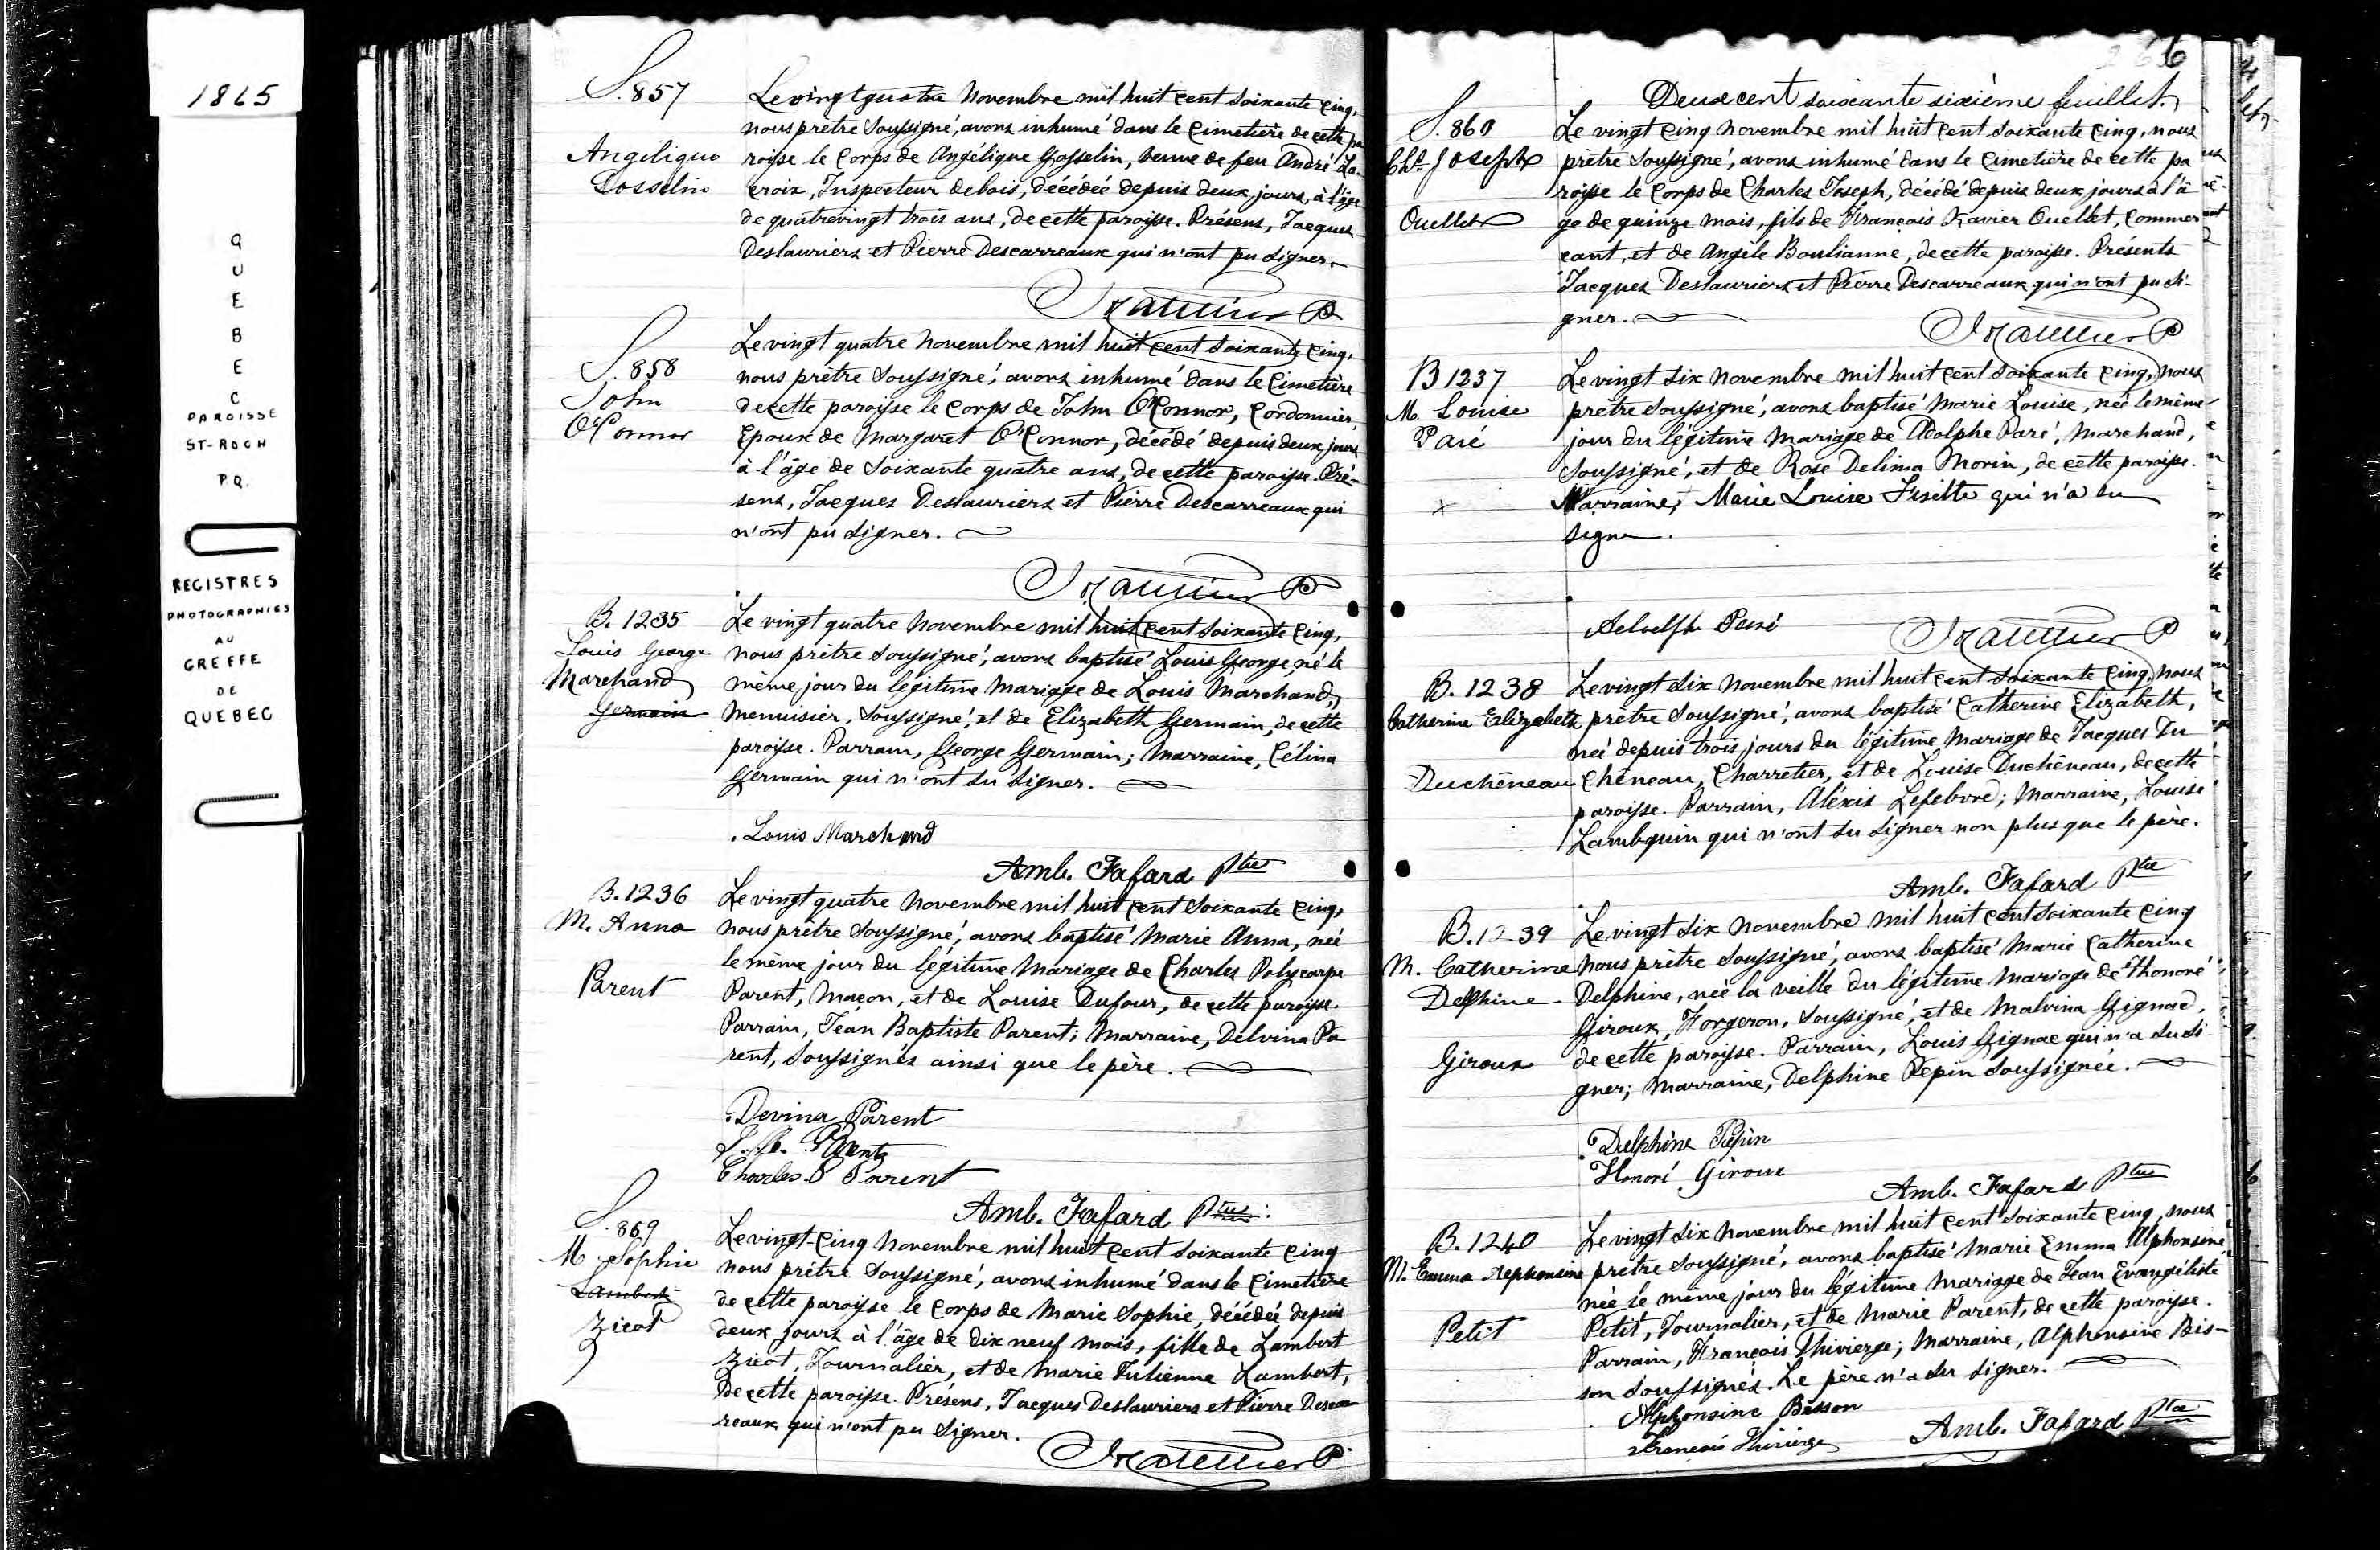 1865
QUEBEC
PAROISSE
ST-ROCH
P.Q.
REGISTRES
PHOTOGRAPHIES
AU
GREFFE
DE
QUEBEC
S. 857
Angélique
Gosselin
Le vingt quatre Novembre mil huit cent soixante cinq,
nous prêtre soussigné, avons inhumé dans le Cimetière de cette pa
roisse le Corps de Angélique Gosselin, veuve de feu André La-
croix, Inspecteur de bois, décédée depuis deux jours, à l'âge
de quatrevingt trois ans, de cette paroisse. Présens, Jacques
Deslauriers et Pierre Descarreaux qui n'ont pu signer.
S. 858
John
O'Connor
Le vingt quatre Novembre mil huit cent soixante cinq,
nous prêtre soussigné, avons inhumé dans le Cimetière
de cette paroisse le Corps de John O'Connor, Cordonnier,
Epoux de Margaret O'Connor, décédé depuis deux jours
à l'âge de soixante quatre ans, de cette paroisse. Pré-
sens, Jacques Deslauriers et Pierre Descarreaux qui
n'ont pu signer.
B. 1235
Louis George
Marchand
Germain
Le vingt quatre Novembre mil huit cent soixante cinq,
nous prêtre soussigné, avons baptisé Louis George, né le
même jour du légitime mariage de Louis Marchand,
Menuisier, soussigné, et de Elizabeth Germain, de cette
paroisse. Parrain, George Germain; Marraine, Célina
Germain qui n'ont su signer.
Louis Marchand
Amb. Fafard Ptre
B. 1236
M. Anna
Parent
Le vingt quatre Novembre mil huit cent soixante cinq,
nous prêtre soussigné, avons baptisé Marie Anna, née
le même jour du légitime mariage de Charles Polycarpe
Parent, Maçon, et de Louise Dufour, de cette paroisse.
Parrain, Jean Baptiste Parent; Marraine, Delvina Pa
rent, soussignés ainsi que le père.
Devina Parent
J. B. Parent
Charles P Parent
Amb. Fafard Ptre
S. 869
M Sophie
Lambert
Zicot
Le vingt-cinq Novembre mil huit cent soixante cinq
nous prêtre soussigné, avons inhumé dans le Cimetière
de cette paroisse le Corps de Marie Sophie, décédée depuis
deux jours à l'âge de dix neuf mois, fille de Lambert
Zicot, Journalier, et de Marie Julienne Lambert,
de cette paroisse. Présens, Jacques Deslauriers et Pierre Descar
reaux qui n'ont pu signer.
266
Deux cent soixante sixième feuillet.
S. 860
Chs. Joseph
Ouellet
Le vingt cinq Novembre mil huit cent soixante cinq, nous
prêtre soussigné, avons inhumé dans le Cimetière de cette pa
roisse le Corps de Charles Joseph, décédé depuis deux jours à l'â
ge de quinze mois, fils de François Xavier Ouellet, Commer
çant, et de Angèle Boulianne, de cette paroisse. Présents
Jacques Deslauriers et Pierre Descarreaux qui n'ont pu si-
gner.
B 1237
M. Louise
Paré
x
Le vingt six Novembre mil huit cent soixante cinq, nous
prêtre soussigné, avons baptisé Marie Louise, née le même
jour du légitime Mariage de Adolphe Paré, Marchand,
soussigné, et de Rose Delima Morin, de cette paroisse.
Marraine, Marie Louise Fisette qui n'a su
signer.
Adolphe Paré
B. 1238
Catherine Elizabeth
Duchêneau
Le vingt six Novembre mil huit cent soixante cinq, nous
prêtre soussigné, avons baptisé Catherine Elizabeth,
née depuis trois jours du légitime mariage de Jacques Du
chêneau, Charretier, et de Louise Duchêneau, de cette
paroisse. Parrain, Aléxis Lefebvre; Marraine, Louise
Lambquin qui n'ont su signer non plus que le père.
Amb. Fafard Ptre
B. 1239
M. Catherine
Delphine
Giroux
Le vingt six Novembre mil huit cent soixante cinq
nous prêtre soussigné, avons baptisé Marie Catherine
Delphine, née la veille du légitime mariage de Honoré
Giroux, Forgeron, soussigné, et de Malvina Gignac,
de cette paroisse. Parrain, Louis Gignac qui n'a su si-
gner; Marraine, Delphine Pepin soussignée.
Delphine Pépin
Honoré Giroux
Amb. Fafard Ptre
B. 1240
M. Emma Alphonsine
Petit
Le vingt six Novembre mil huit cent soixante cinq, nous
prêtre soussigné, avons baptisé Marie Emma Alphonsine
née le même jour du légitime mariage de Jean Evangéliste
Petit, Journalier, et de Marie Parent, de cette paroisse.
Parrain, François Thivierge; Marraine, Alphonsine Bis-
son soussignés. Le père n'a su signer.
Alphonsine Bisson
François Thivierge
Amb. Fafard Ptre